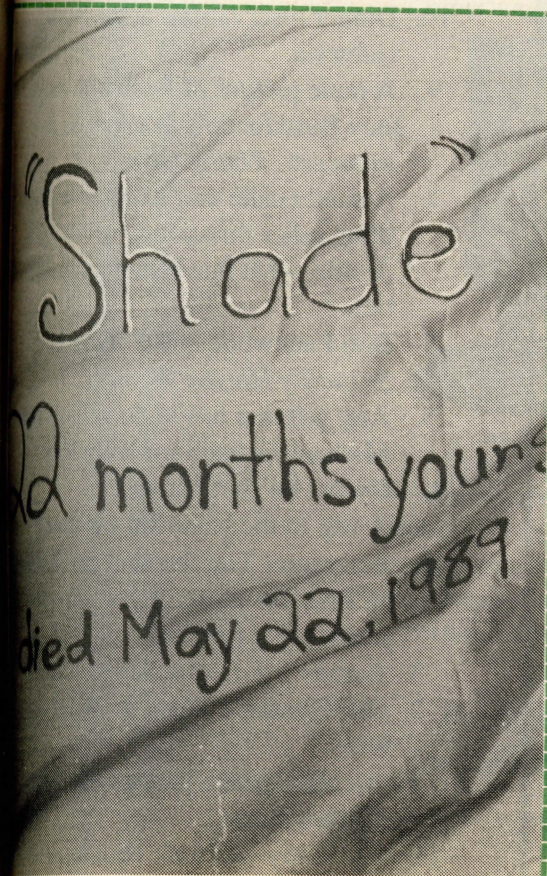 "Shade"
22 months young
died May 22, 1989